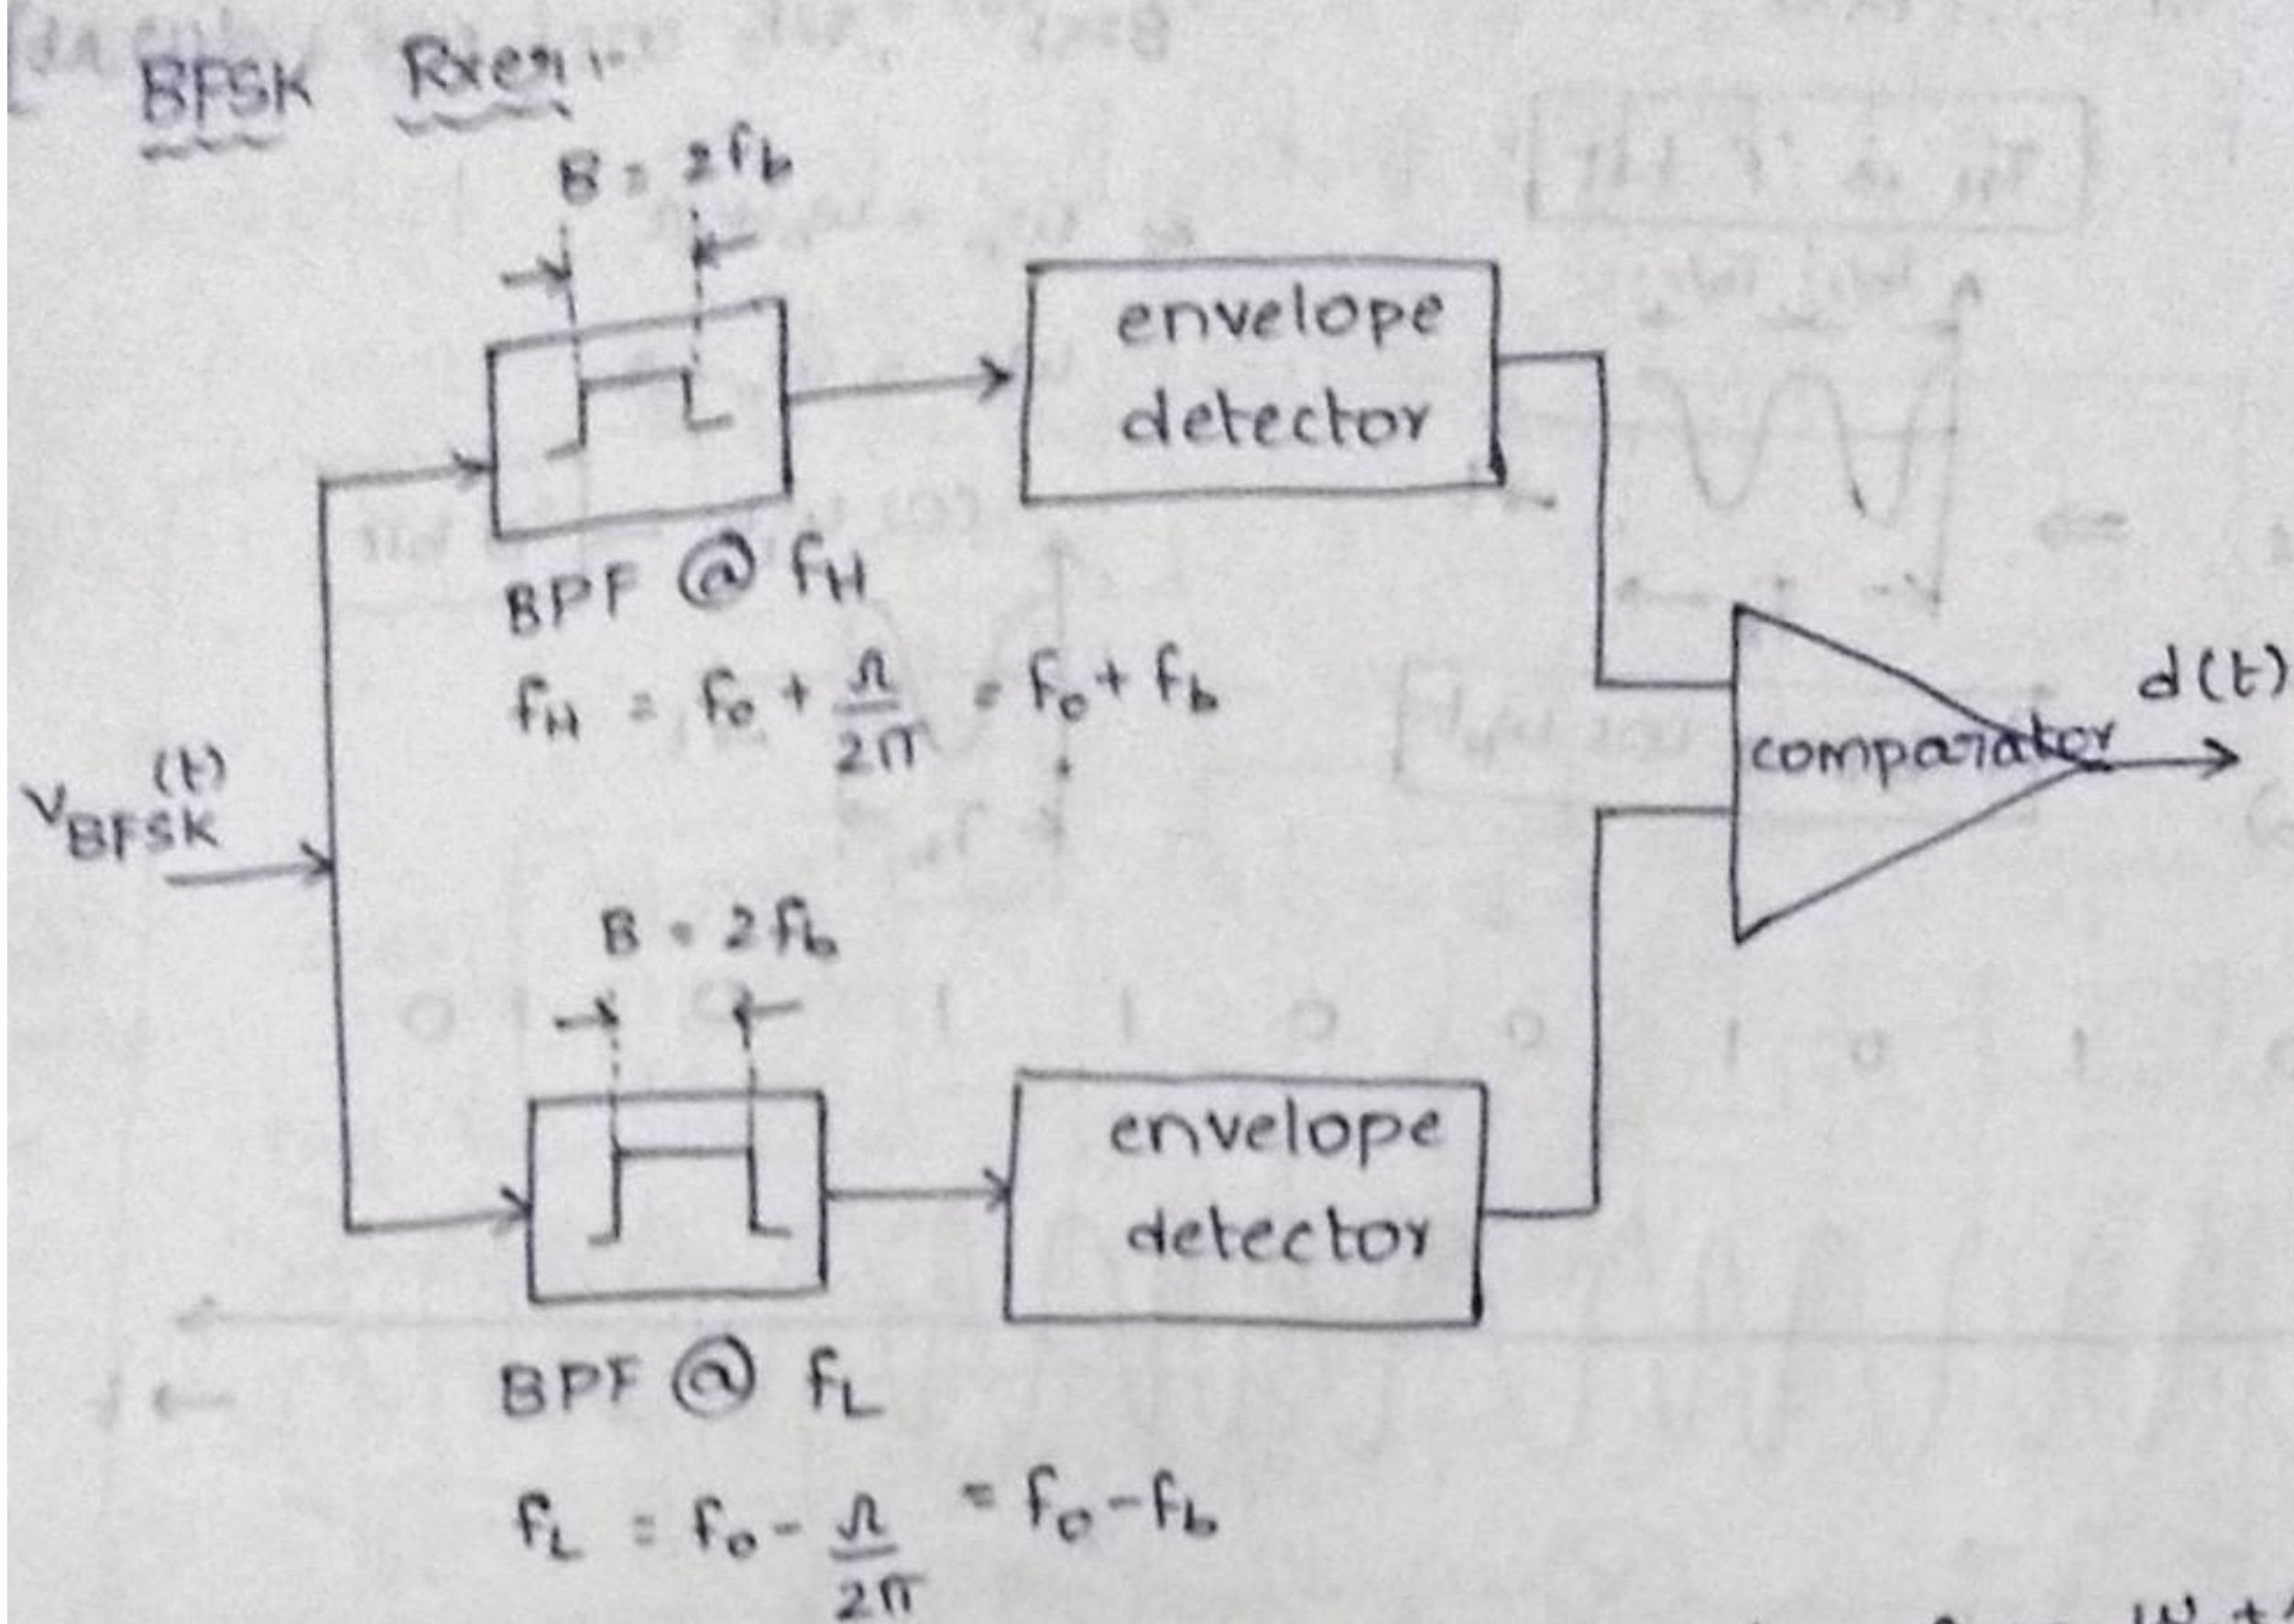 BFSK Rxer :-
B = 2fb
envelope
detector
BPF @ fH
fH = fo + Ω/2π = fo + fb
VBFSK(t)
comparator
d(t)
B = 2fb
envelope
detector
BPF @ fL
fL = fo - Ω/2π = fo - fb